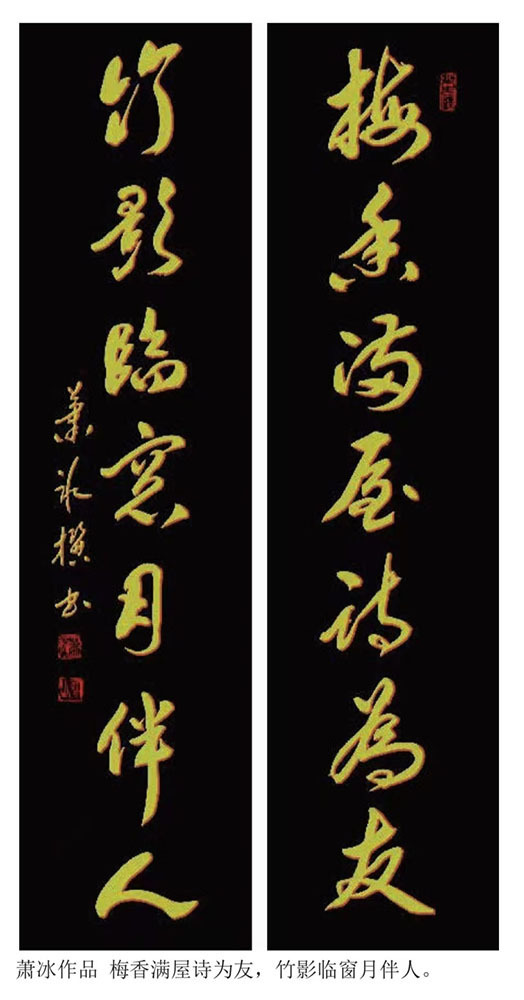 梅香满屋诗為友
竹影臨窓月伴人
萧冰撰书
萧冰作品 梅香满屋诗为友，竹影临窗月伴人。